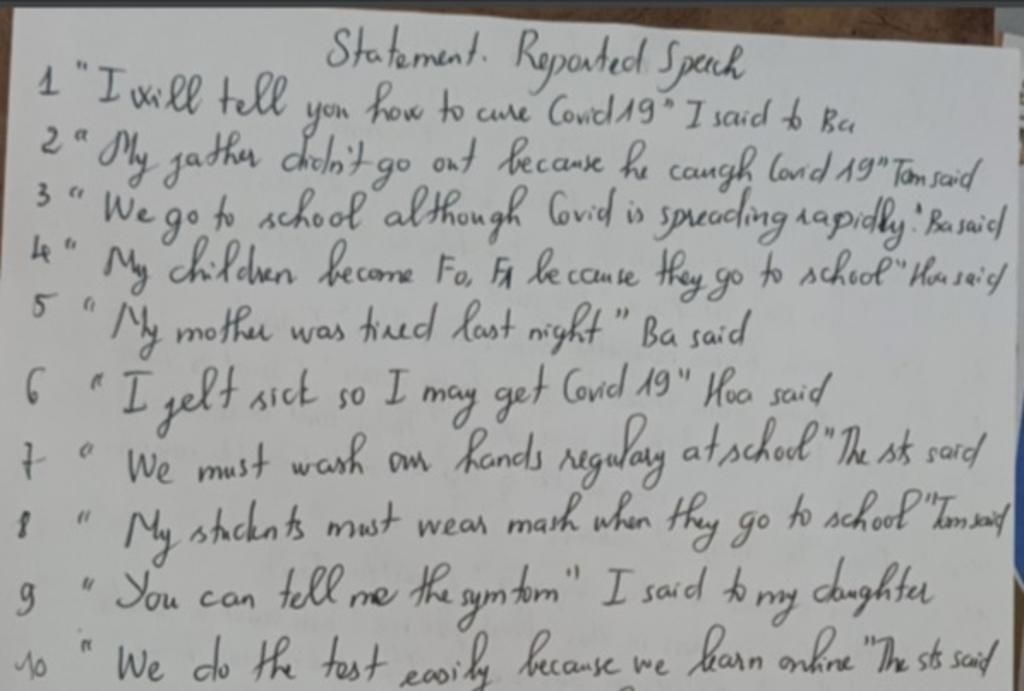 Statement. Reported Speech
1 "I will tell you how to cure Covid 19" I said to Ba
2 "My father didn't go out because he caugh Covid 19" Tom said
3 "We go to school although Covid is spreading rapidly." Ba said
4 "My children become F0, F1 because they go to school" Hoa said
5 "My mother was tired last night" Ba said
6 "I felt sick so I may get Covid 19" Hoa said
7 "We must wash our hands regulary at school" The sts said
8 "My students must wear mash when they go to school" Tom said
9 "You can tell me the symtom" I said to my daughter
10 "We do the test easily because we learn online" The sts said